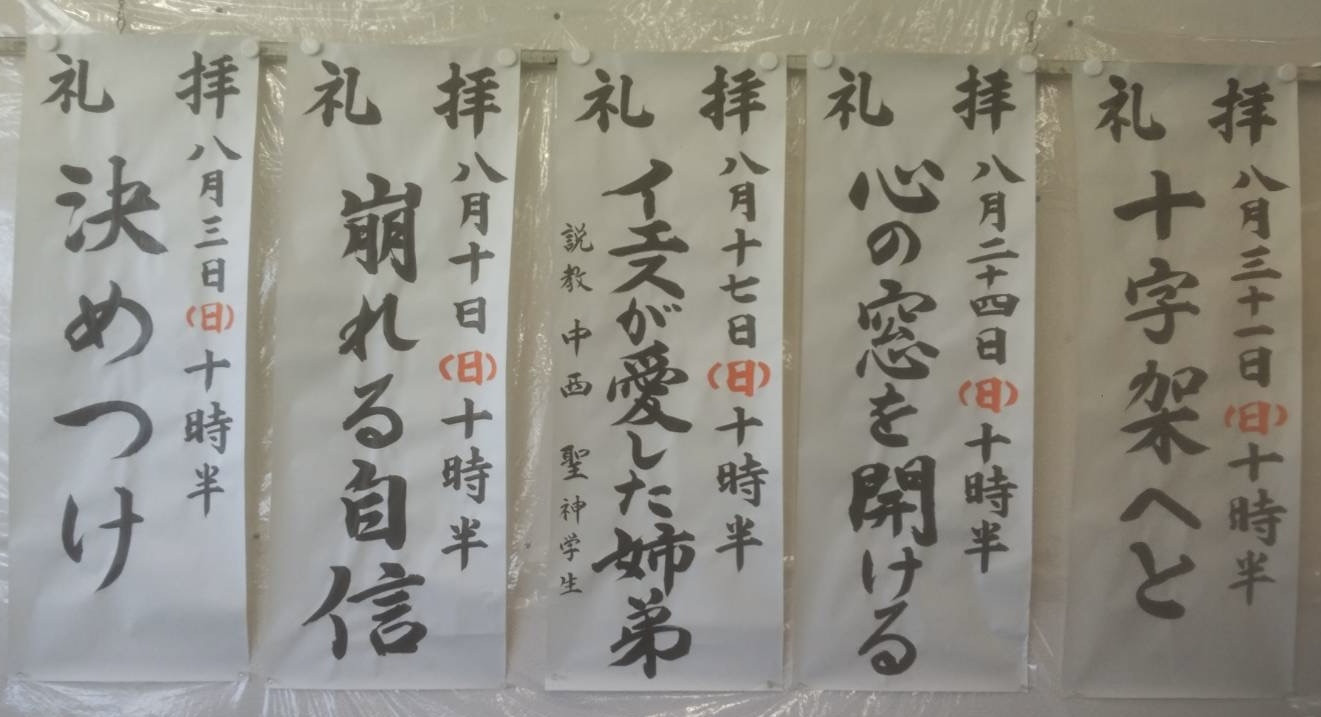 拝礼
八月三日(日)十時半
決めつけ
拝礼
八月十日(日)十時半
崩れる自信
拝礼
八月十七日(日)十時半
イエスが愛した姉弟
説教 中西 聖神学生
拝礼
八月二十四日(日)十時半
心の窓を開ける
拝礼
八月三十一日(日)十時半
十字架へと